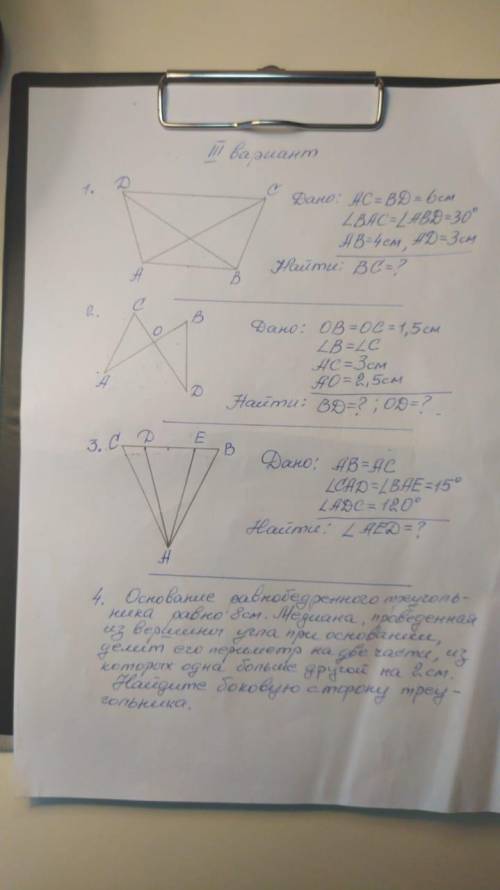 III вариант
1. D C Дано: AC=BD=6см
∠BAC=∠ABD=30°
AB=4см, AD=3см
A B Найти: BC=?
2. C O B Дано: OB=OC=1,5см
∠B=∠C
AC=3см
A AO=2,5см
D Найти: BD=?; OD=?
3. C D E B Дано: AB=AC
∠CAD=∠BAE=15°
∠ADC=120°
A Найти: ∠AED=?
4. Основание равнобедренного треуголь-
ника равно 8см. Медиана, проведенная
из вершины угла при основании,
делит его периметр на две части, из
которых одна больше другой на 2см.
Найдите боковую сторону треу-
гольника.